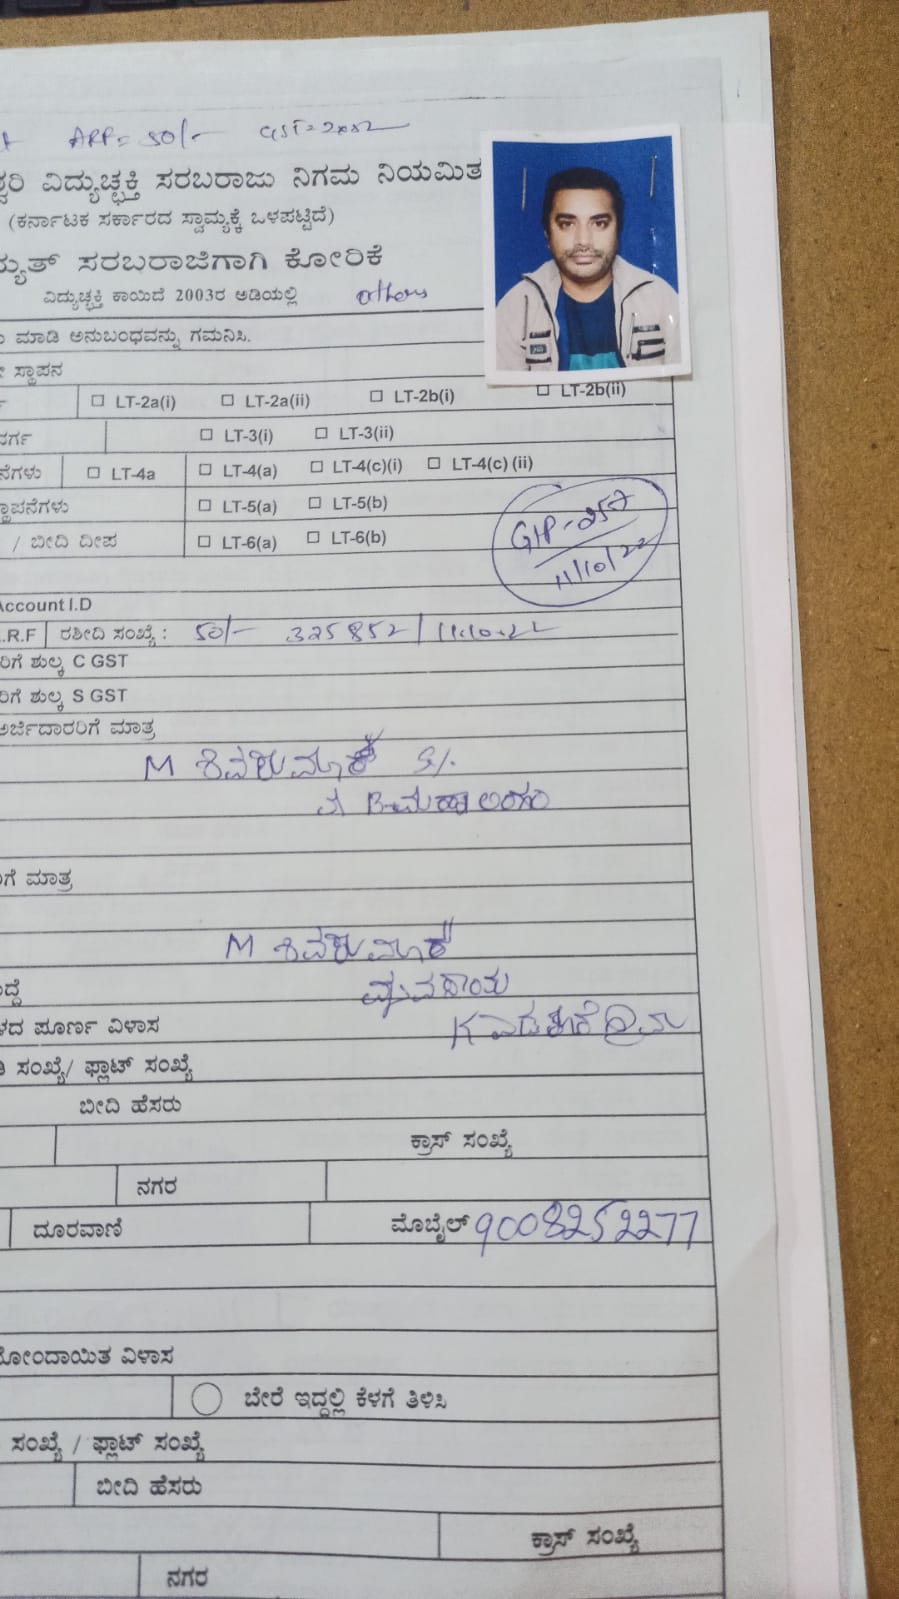 ARP = 50/- GST=
ವಿದ್ಯುಚ್ಛಕ್ತಿ ಸರಬರಾಜು ನಿಗಮ ನಿಯಮಿತ
(ಕರ್ನಾಟಕ ಸರ್ಕಾರದ ಸ್ವಾಮ್ಯಕ್ಕೆ ಒಳಪಟ್ಟಿದೆ)
ಸರಬರಾಜಿಗಾಗಿ ಕೋರಿಕೆ
ವಿದ್ಯುಚ್ಛಕ್ತಿ ಕಾಯಿದೆ 2003ರ ಅಡಿಯಲ್ಲಿ others
ಮಾಡಿ ಅನುಬಂಧವನ್ನು ಗಮನಿಸಿ.
ಸ್ಥಾಪನ
LT-2a(i) LT-2a(ii) LT-2b(i) LT-2b(ii)
LT-3(i) LT-3(ii)
LT-4a LT-4(a) LT-4(c)(i) LT-4(c) (ii)
LT-5(a) LT-5(b)
/ ಬೀದಿ ದೀಪ LT-6(a) LT-6(b)
GIP-257
11/10/22
Account I.D
.R.F ರಶೀದಿ ಸಂಖ್ಯೆ : 50/- 325852/11.10.22
ಶುಲ್ಕ C GST
ಶುಲ್ಕ S GST
ಅರ್ಜಿದಾರರಿಗೆ ಮಾತ್ರ
M ಶಿವಕುಮಾರ್ S/.
B-ಮಹಾಲಿಂಗಂ
ಮಾತ್ರ
M ಶಿವಕುಮಾರ್
ಪೂರ್ಣ ವಿಳಾಸ
ಸಂಖ್ಯೆ/ ಫ್ಲಾಟ್ ಸಂಖ್ಯೆ
ಬೀದಿ ಹೆಸರು
ಕ್ರಾಸ್ ಸಂಖ್ಯೆ
ನಗರ
ದೂರವಾಣಿ ಮೊಬೈಲ್ 9008252277
ವಿಳಾಸ
ಬೇರೆ ಇದ್ದಲ್ಲಿ ಕೆಳಗೆ ತಿಳಿಸಿ
ಸಂಖ್ಯೆ / ಫ್ಲಾಟ್ ಸಂಖ್ಯೆ
ಬೀದಿ ಹೆಸರು
ಕ್ರಾಸ್ ಸಂಖ್ಯೆ
ನಗರ